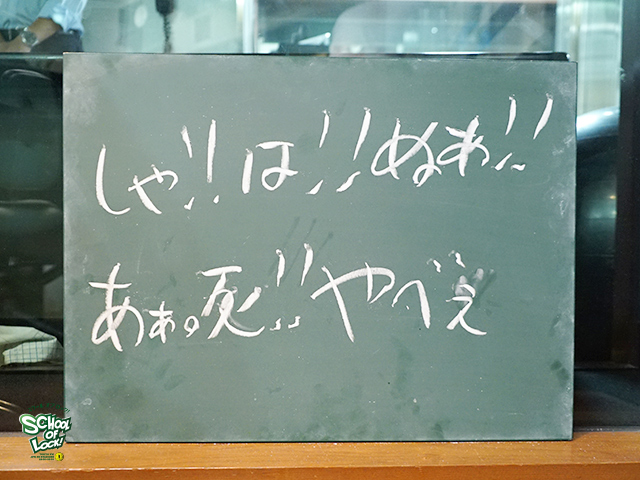 しゃ!!は!!ぬぁ!!
あぁ。死!!やべぇ
SCHOOL
OF
LOCK!